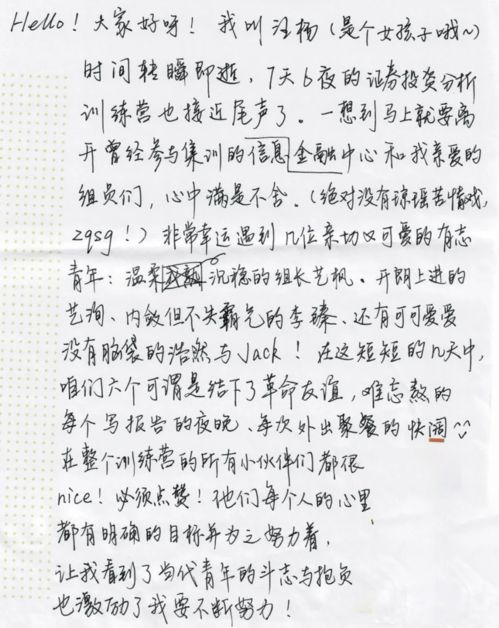 Hello！大家好呀！我叫汪杨（是个女孩子哦～）
时间转瞬即逝，7天6夜的证券投资分析
训练营也接近尾声了。一想到马上就要离
开曾经参与集训的信息金融中心和我亲爱的
组员们，心中满是不舍。（绝对没有琼瑶苦情戏，
zqsg！）非常幸运遇到几位亲切又可爱的有志
青年：温柔沉稳的组长艺枫、开朗上进的
艺洵、内敛但不失霸气的李臻、还有可可爱爱
没有脑袋的浩然与Jack！在这短短的几天中，
咱们六个可谓是结下了革命友谊，难忘熬的
每个写报告的夜晚、每次外出聚餐的快
在整个训练营的所有小伙伴们都很
nice！必须点赞！他们每个人的心里
都有明确的目标并为之努力着，
让我看到了当代青年的斗志与抱负
也激励了我要不断努力！